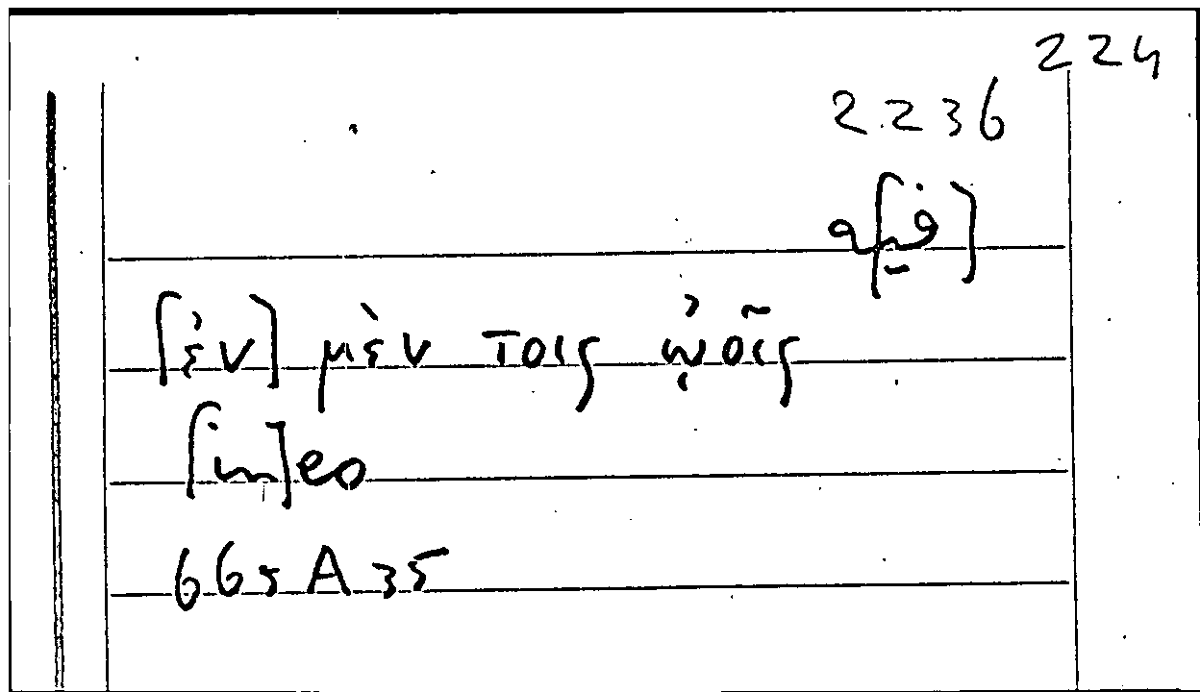 224
2236
[ἐν] μὲν τοις ᾠοῖς
[in]eo
665A35